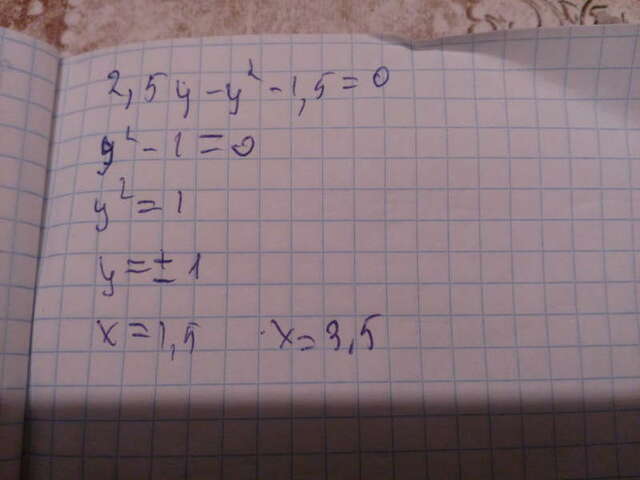 2,5y - y² - 1,5 = 0
y² - 1 = 0
y² = 1
y = ± 1
x = 1,5 x = 3,5